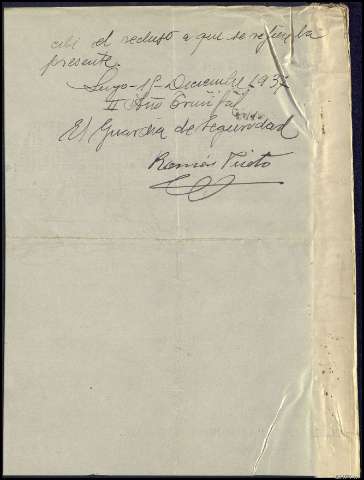 cibí el recluso a que se refiere la
presente.
Lugo-15-Diciembre 1937
II Año Triunfal
El Guardia de Seguridad
Ramón Prieto